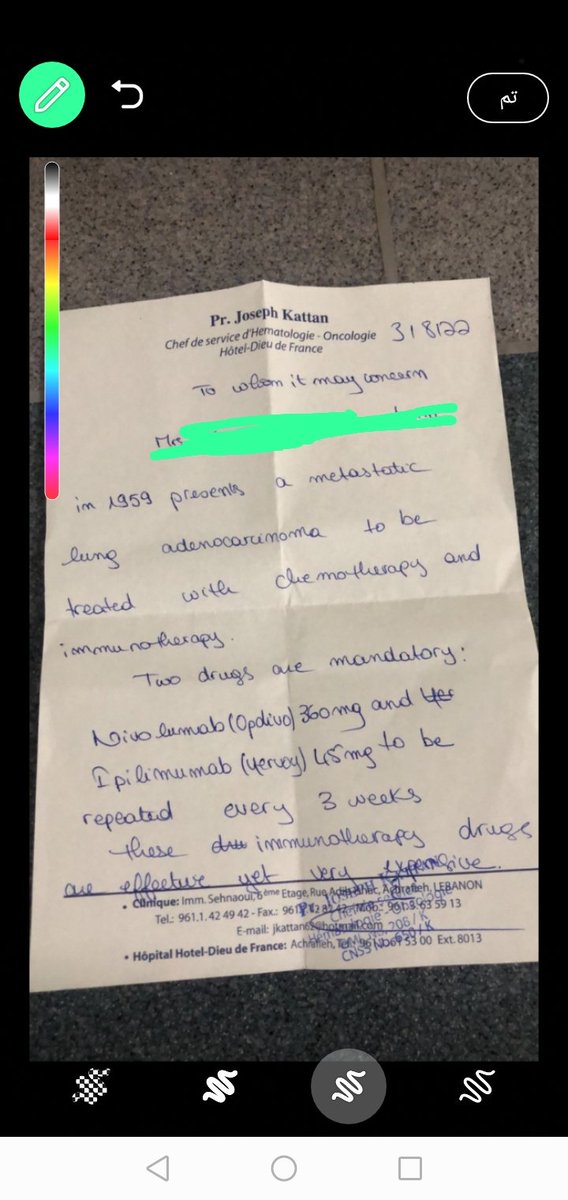 تم
Pr. Joseph Kattan
Chef de service d'Hématologie - Oncologie
Hôtel-Dieu de France
3/8/22
To whom it may concern
Mrs
in 1959 presents a metastatic
lung adenocarcinoma to be
treated with chemotherapy and
immunotherapy.
Two drugs are mandatory:
Nivolumab (Opdivo) 360mg and Yer
Ipilimumab (Yervoy) 45mg to be
repeated every 3 weeks
These immunotherapy drugs
are effective yet very expensive.
• Clinique: Imm. Sehnaoui, 6ème Etage, Rue Achrafieh, LEBANON
Tel.: 961.1.42 49 42 - Fax.:
E-mail:
CNSS
• Hôpital Hotel-Dieu de France: Achrafieh, 53 00 Ext. 8013